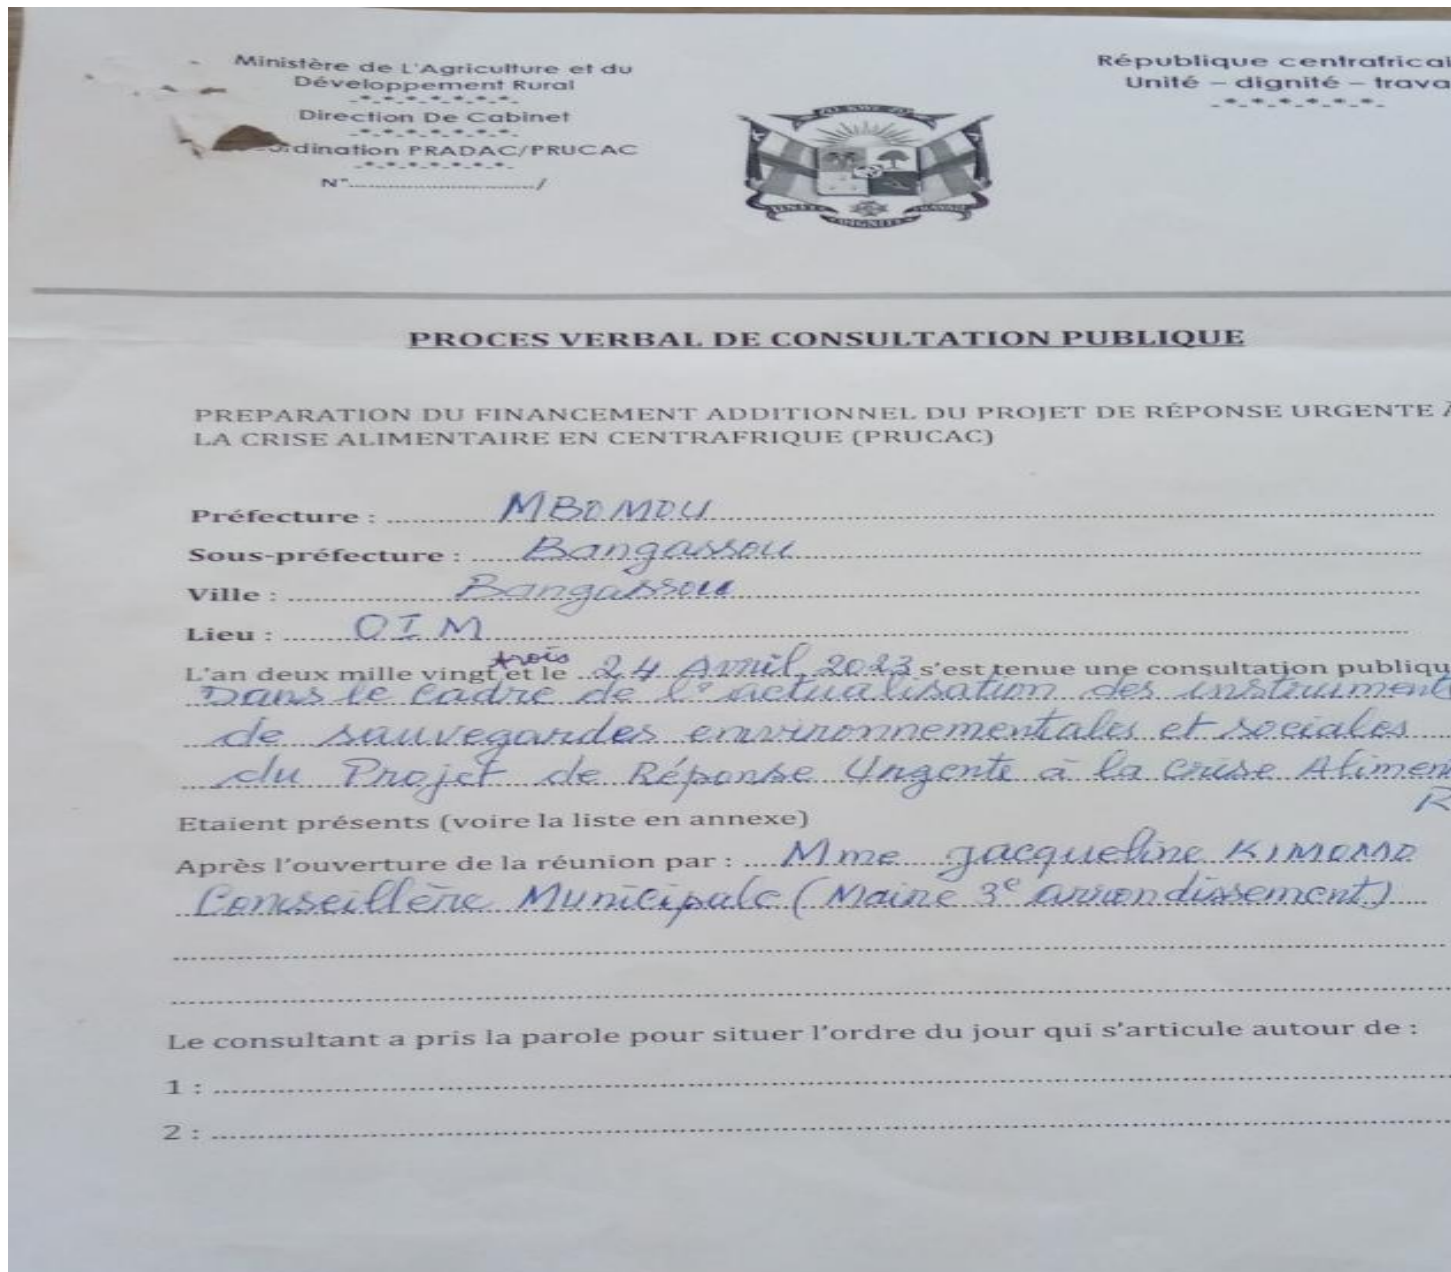 Ministère de L'Agriculture et du
Développement Rural
-*-*-*-*-*-*-*-
Direction De Cabinet
-*-*-*-*-*-*-*-
rdination PRADAC/PRUCAC
-*-*-*-*-*-*-*-
N°............................../
République centrafricai
Unité – dignité – trava
-*-*-*-*-*-*-
UNITE DIGNITE TRAVAIL
PROCES VERBAL DE CONSULTATION PUBLIQUE
PREPARATION DU FINANCEMENT ADDITIONNEL DU PROJET DE RÉPONSE URGENTE À
LA CRISE ALIMENTAIRE EN CENTRAFRIQUE (PRUCAC)
Préfecture : MBOMOU
Sous-préfecture : Bangassou
Ville : Bangassou
Lieu : OIM
L'an deux mille vingt trois et le 24 Avril 2023 s'est tenue une consultation publiqu
Dans le cadre de l'actualisation des instrument
de sauvegardes environnementales et sociales
du Projet de Réponse Urgente à la Crise Alimen
R
Etaient présents (voire la liste en annexe)
Après l'ouverture de la réunion par : Mme Jacqueline KIMOMO
Conseillère Municipale (Maire 3e arrondissement)
Le consultant a pris la parole pour situer l'ordre du jour qui s'articule autour de :
1 :
2 :